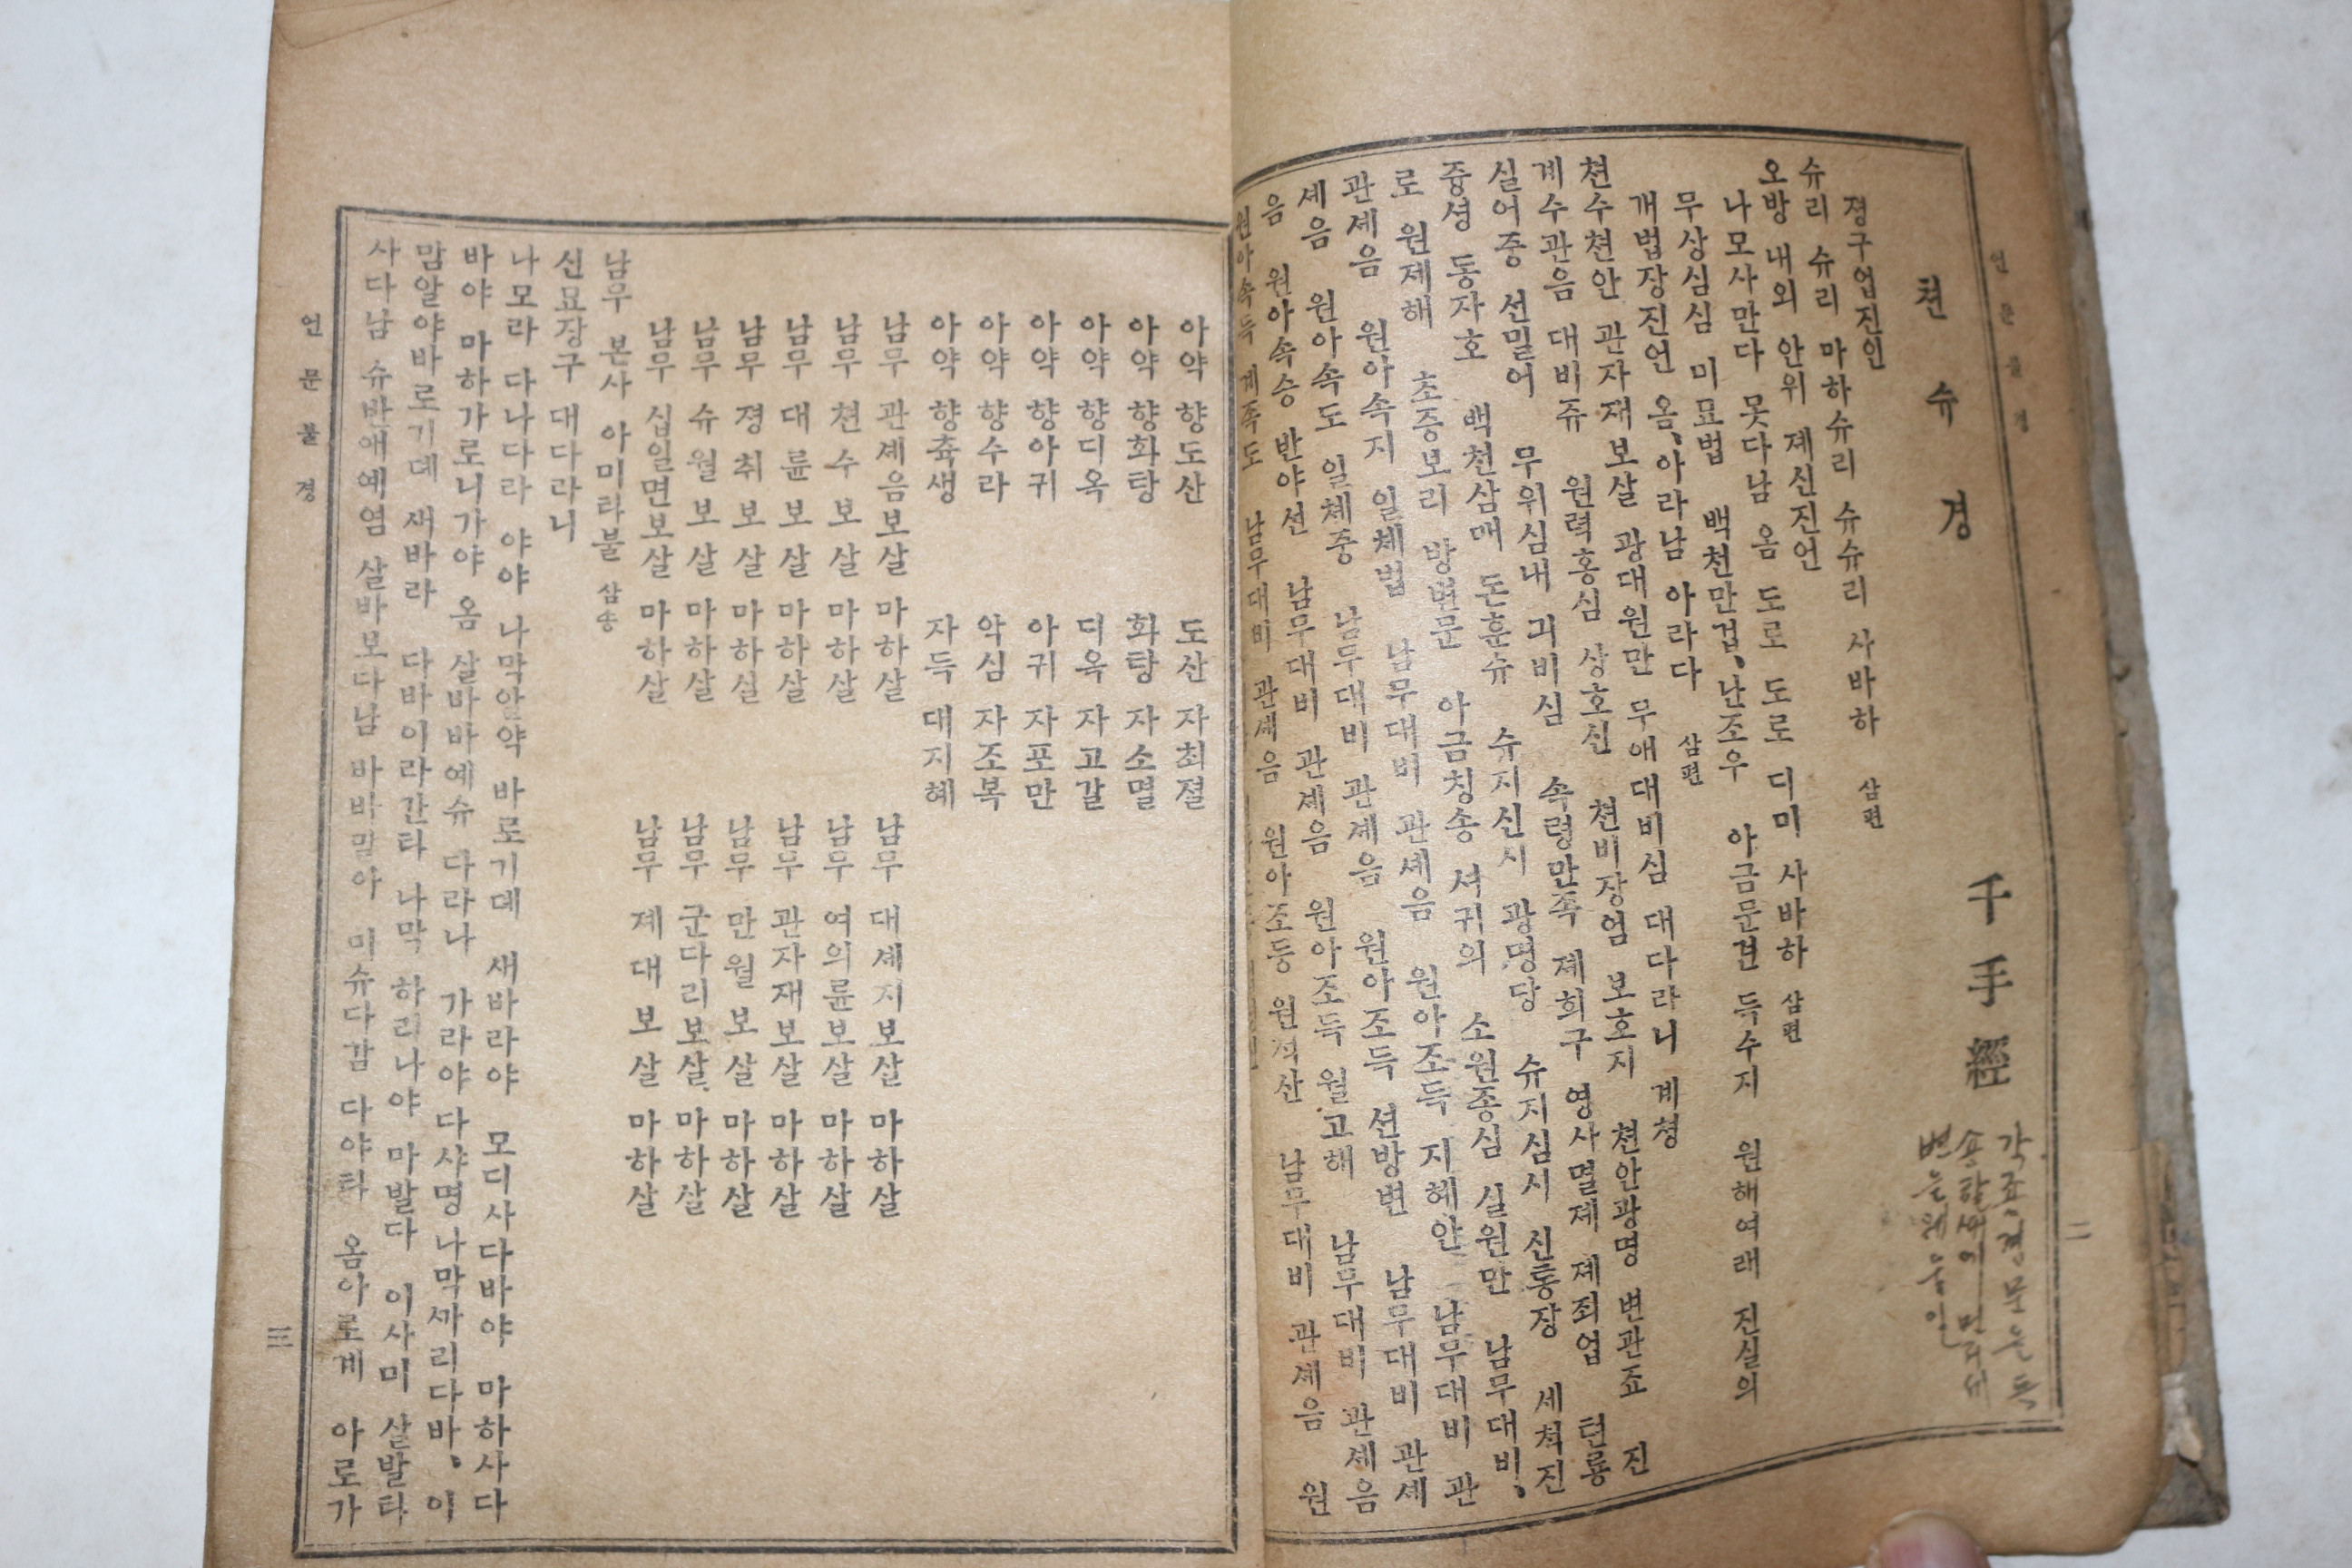 언문불경
천슈경 千手經
정구업진인
슈리 슈리 마하슈리 슈슈리 사바하 삼편
오방 내외 안위 졔신진언
나모사만다 못다남 옴 도로 도로 디미 사바하 삼편
무상심심 미묘법 백천만겁、난조우 아금문견 득수지 원해여래 진실의
개법장진언 옴、아라남 아라다 삼편
쳔수쳔안 관자재보살 광대원만 무애대비심 대다라니 계쳥
계수관음 대비쥬 원력홍심 상호신 쳔비장엄 보호지 쳔안광명 변관죠 진
실어중 선밀어 무위심내 긔비심 속령만죡 졔희구 영사멸졔 졔죄업 텬룡
즁셩 동자호 백쳔삼매 돈훈슈 슈지신시 광명당 슈지심시 신통장 세쳑진
로 원졔해 초증보리 방변문 아금칭송 셔귀의 소원종심 실원만 남무대비、
관셰음 원아속지 일쳬법 남무대비 관셰음 원아조득 지혜안 남무대비 관
셰음 원아속도 일쳬중 남무대비 관셰음 원아조득 션방변 남무대비 관셰
음 원아속승 반야션 남무대비 관셰음 원아조득 월고해 남무대비 관셰음
원아속득 계죡도 남무대비 관셰음 원아조등 원적산 남무대비 관셰음 원
二
아약 향도산 도산 자최졀
아약 향화탕 화탕 자소멸
아약 향디옥 디옥 자고갈
아약 향아귀 아귀 자포만
아약 향수라 악심 자조복
아약 향츅생 자득 대지혜
남무 관셰음보살 마하살 남무 대셰지보살 마하살
남무 쳔수 보살 마하살 남무 여의륜보살 마하살
남무 대륜 보살 마하살 남무 관자재보살 마하살
남무 졍취 보살 마하살 남무 만월 보살 마하살
남무 슈월 보살 마하살 남무 군다리보살 마하살
남무 십일면보살 마하살 남무 졔대 보살 마하살
남무 본사 아미타불 삼송
신묘장구 대다라니
나모라 다나다라 야야 나막알약 바로기뎨 새바라야 모디사다바야 마하사다
바야 마하가로니가야 옴 살바바예슈 다라나 가라야 다샤명 나막까리다바、이
맘알야바로기뎨 새바라 다바이라간타 나막 하리나야 마발다 이사미 살발타
사다남 슈반애예염 살바보다남 바바말아 미슈다감 다야타 옴아로계 아로가
언문불경
三